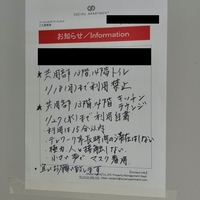 SOCIAL APARTMENT
お知らせ／Information
★共用部13階,14階トイレ
1/18(月)まで利用禁止
★共用部13階,14階キッチン
ラウンジ
1/27(水)まで利用自粛
・利用は15分以内
・テレワーク等長時間の滞在はしない
・極力人と接触しない
マスク着用
★宜しくお願い致します